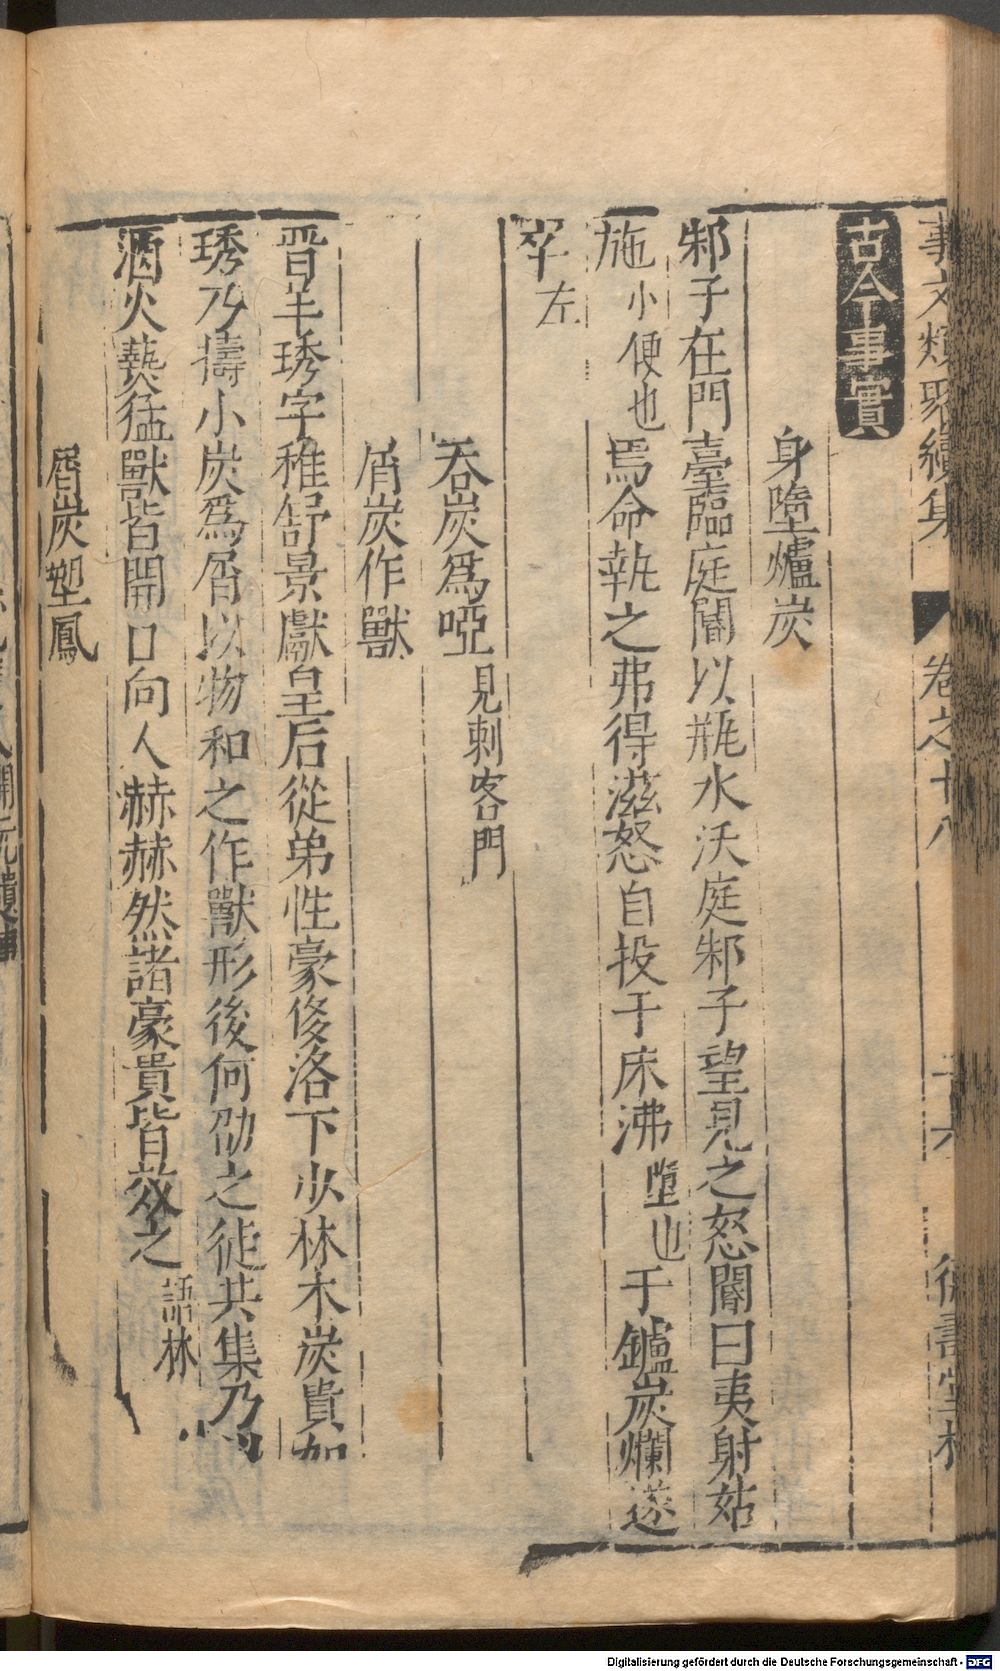 事文類聚續集 卷之十八
古今事實
身墮爐炭
邾子在門臺臨庭閽以瓶水沃庭邾子望見之怒閽曰夷射姑
施小便也焉命執之弗得滋怒自投于床沸墮也于鑪炭爛遂
卒左
吞炭爲啞見刺客門
屑炭作獸
晋羊琇字稚舒景獻皇后從弟性豪侈洛下少林木炭貴如
琇乃擣小炭爲屑以物和之作獸形後何劭之徒共集乃以
酒火爇猛獸皆開口向人赫赫然諸豪貴皆效之語林
屑炭塑鳳
Digitalisierung gefördert durch die Deutsche Forschungsgemeinschaft - DFG